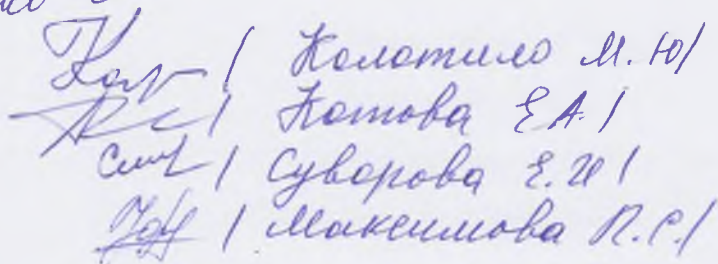 / Колотило М. Ю/
/ Котова Е.А. /
/ Суворова Е.И /
/ Максимова Л.С./